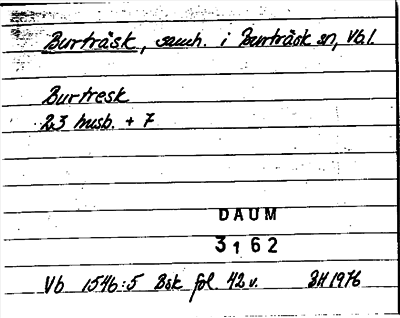 Burträsk, samh. i Burträsk sn, Vb.l.
Burtresk
23 husb. + 7
DAUM
3162
Vb 1546:5 Bsk fol. 42 v. 3H 1976